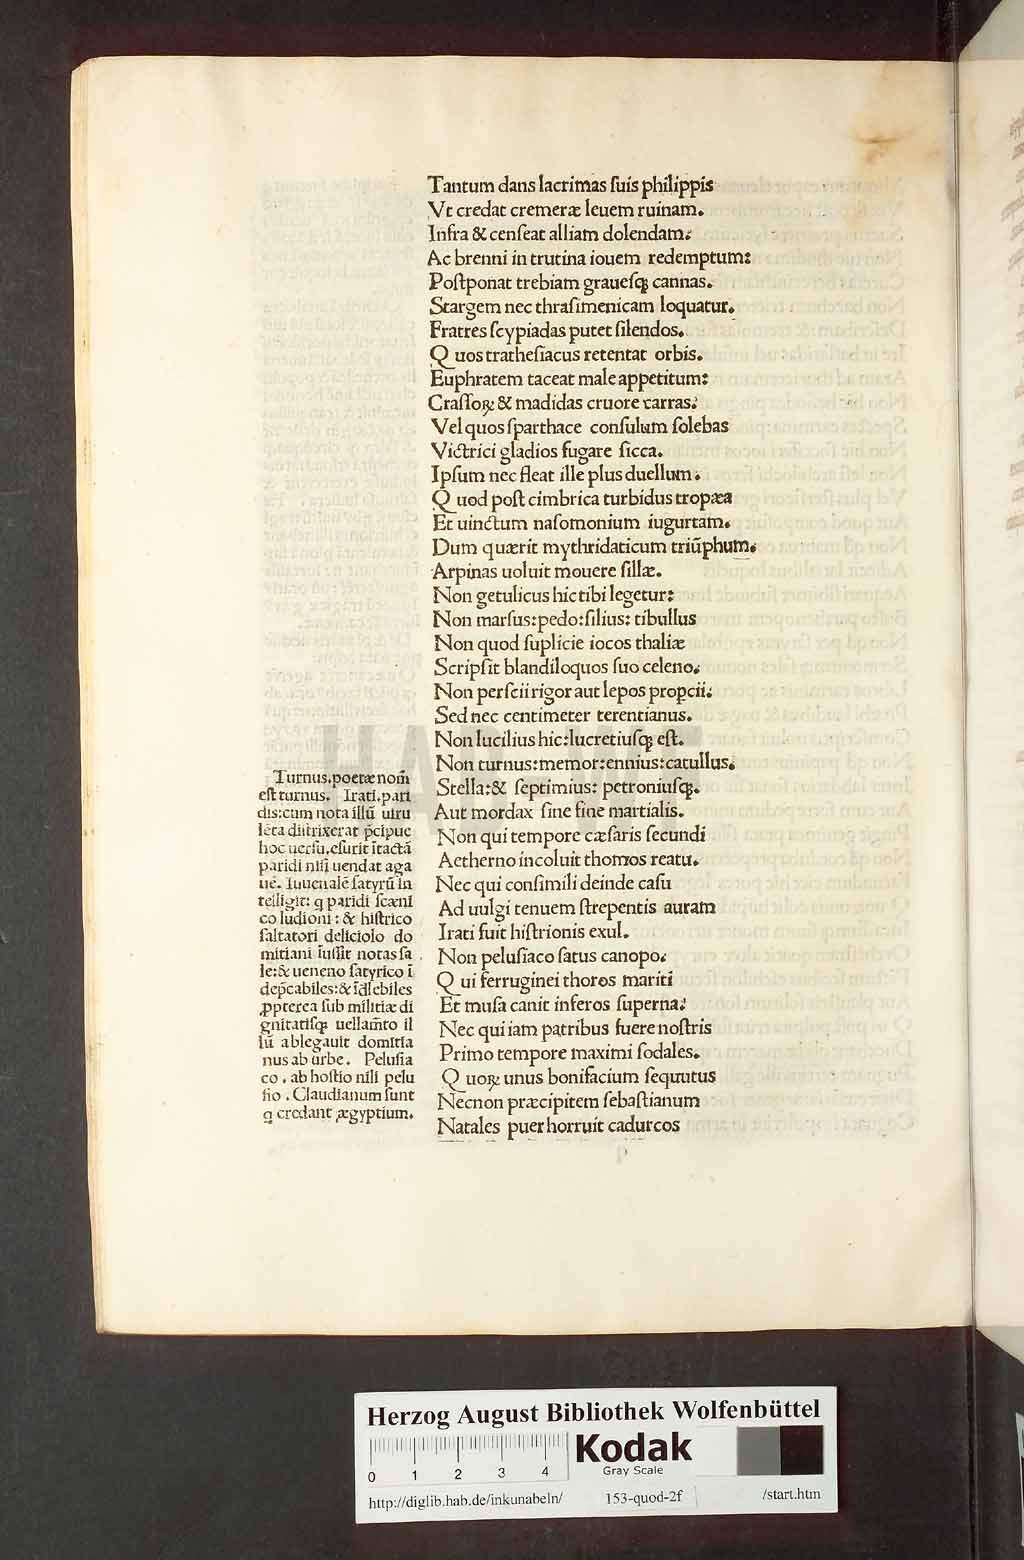 Tantum dans lacrimas ſuis philippis
Vt credat cremeræ leuem ruinam.
Infra & cenſeat alliam dolendam:
Ac brenni in trutina iouem redemptum:
Poſtponat trebiam graueſqꝫ cannas.
Stargem nec thraſimenicam loquatur.
Fratres ſcypiadas putet ſilendos.
Quos tratheſiacus retentat orbis.
Euphratem taceat male appetitum:
Craſſoꝝ & madidas cruore carras:
Vel quos ſparthace conſulum ſolebas
Victrici gladios fugare ſicca.
Ipſum nec fleat ille plus duellum.
Quod poſt cimbrica turbidus tropæa
Et uinctum naſomonium iugurtam.
Dum quærit mythridaticum triūphum.
Arpinas uoluit mouere ſillæ.
Non getulicus hic tibi legetur:
Non marſus: pedo: ſilius: tibullus
Non quod ſuplicie iocos thaliæ
Scripſit blandiloquos ſuo celeno.
Non perſcii rigor aut lepos propcii.
Sed nec centimeter terentianus.
Non lucilius hic: lucretiuſqꝫ eſt.
Non turnus: memor: ennius: catullus.
Stella: & ſeptimius: petroniuſqꝫ.
Aut mordax ſine fine martialis.
Non qui tempore cæſaris ſecundi
Aetherno incoluit thomos reatu.
Nec qui conſimili deinde caſu
Ad uulgi tenuem ſtrepentis auram
Irati fuit hiſtrionis exul.
Non peluſiaco ſatus canopo:
Qui ferruginei thoros mariti
Et muſa canit inferos ſuperna:
Nec qui iam patribus fuere noſtris
Primo tempore maximi ſodales.
Quoꝝ unus bonifacium ſequutus
Necnon præcipitem ſebaſtianum
Natales puer horruit cadurcos
Turnus. poetæ nom̄
eſt turnus. Irati. pari
dis: cum nota illū uiru
lēta diſtrixerat p̄cipue
hoc uerſu. eſurit ītactā
paridi niſi uendat aga
uē. Iuuenalē ſatyrū in
telligit: q paridi ſcæni
co ludioni: & hiſtrico
ſaltatori delicioſo do
mitiani īuſſit notas ſa
le: & ueneno ſatyrico ī
dep̄cabiles: & īdlebiles
ꝓpterea ſub militiæ di
gnitatiſqꝫ uellam̄to il
lū ablegauit domitia
nus ab urbe. Peluſia
co. ab hoſtio nili pelu
ſio. Claudianum ſunt
q credant ægyptium.
HAB-WF
Herzog August Bibliothek Wolfenbüttel
0 1 2 3 4
Kodak
Gray Scale
http://diglib.hab.de/inkunabeln/ 153-quod-2f /start.htm